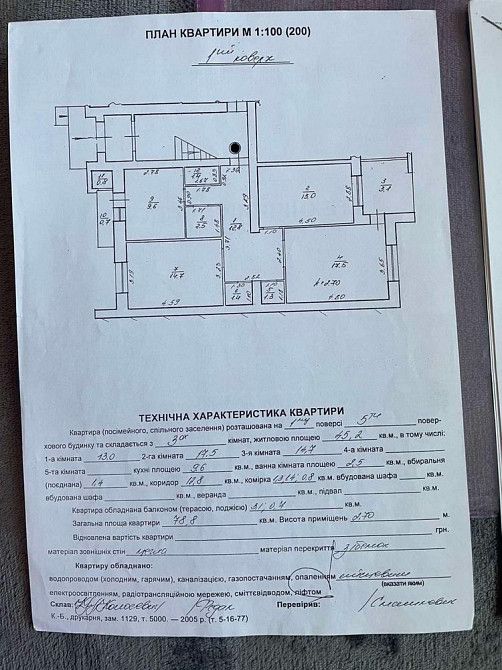 ПЛАН КВАРТИРИ М 1:100 (200)
1ший поверх
2.78
1.30
11
0.8
10
0.7
9
9.6
10
1.4
8
2.5
1
12.8
2
13.0
3
3.1
4.50
7
14.7
4.39
3.19
3.23
2.52
1.10
6
1.4
5
1.3
4
17.5
h=2.70
4.80
3.65
ТЕХНІЧНА ХАРАКТЕРИСТИКА КВАРТИРИ
Квартира (посімейного, спільного заселення) розташована на 1му поверсі 5ти повер-
хового будинку та складається з 3ох кімнат, житловою площею 45,2 кв.м., в тому числі:
1-а кімната 13.0 2-га кімната 17.5 3-я кімната 14,7 4-а кімната
5-та кімната кухні площею 9.6 кв.м., ванна кімната площею 2.5 кв.м., вбиральня
(поєднана) 1.4 кв.м., коридор 12.8 кв.м., комірка 1.3 1.4, 0.8 кв.м., вбудована шафа кв.м.,
вбудована шафа кв.м., веранда кв.м., підвал кв.м.
Квартира обладнана балконом (терасою, лоджією) 3.1, 0,7 кв.м.
Загальна площа квартири 78,8 кв.м. Висота приміщень 2.70 м.
Відновлена вартість квартири грн.
матеріал зовнішніх стін цегла матеріал перекриття з/бетон
Квартиру обладнано:
водопроводом (холодним, гарячим), каналізацією, газопостачанням, опаленням
(вказати яким)
електроосвітленням, радіотрансляційною мережею, сміттєвідводом, ліфтом
Склав: Перевірив:
К.-Б., друкарня, зам. 1129, т. 5000. — 2005 р. (т. 5-16-77)